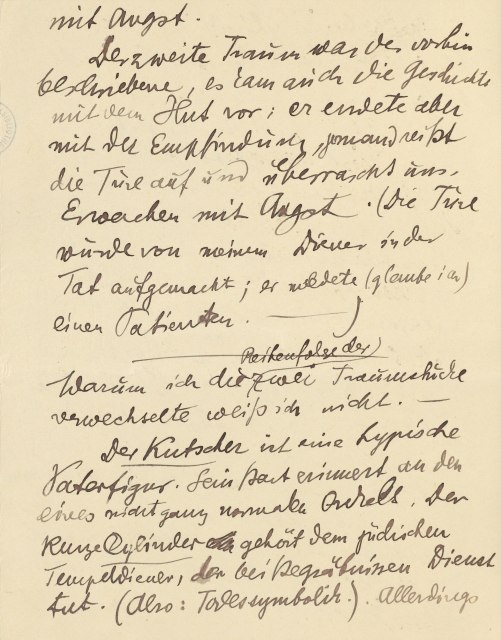 mit Angst.
Der zweite Traum war der vorhin
beschriebene, es kam auch die Geschichte
mit dem Hut vor; er endete aber
mit der Empfindung, jemand reißt
die Türe auf und überrascht uns.
Erwachen mit Angst. (Die Türe
wurde von meinem Diener in der
Tat aufgemacht; er meldete (glaube ich)
einen Patienten. —)
Reihenfolge der
Warum ich die zwei Traumstücke
verwechselte weiß ich nicht. —
Der Kutscher ist eine typische
Vaterfigur. Sein Bart erinnert an den
eines nicht ganz normalen Onkels. Der
kurze Cylinder gehört dem jüdischen
Tempeldiener, der bei Begräbnissen Dienst
tut. (Also: Todessymbolik.). Allerdings